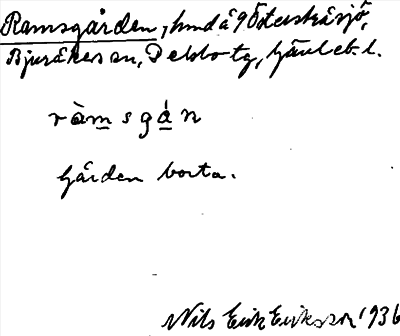 Ramsgården, hmd å 9 Österstråsjö,
Bjuråkers sn, Delsbo tg, Gävleb. l.
ràm s gá n
Gården borta.
Nils Erik Eriksson 1936